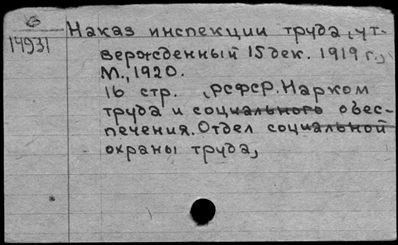 G
14931
Наказ инспекции труда, ут-
вержденный 15 дек. 1919 г.,
М., 1920.
16 стр. РСФСР. Нарком
труда и социального обес-
печения. Отдел социальной
охраны труда,